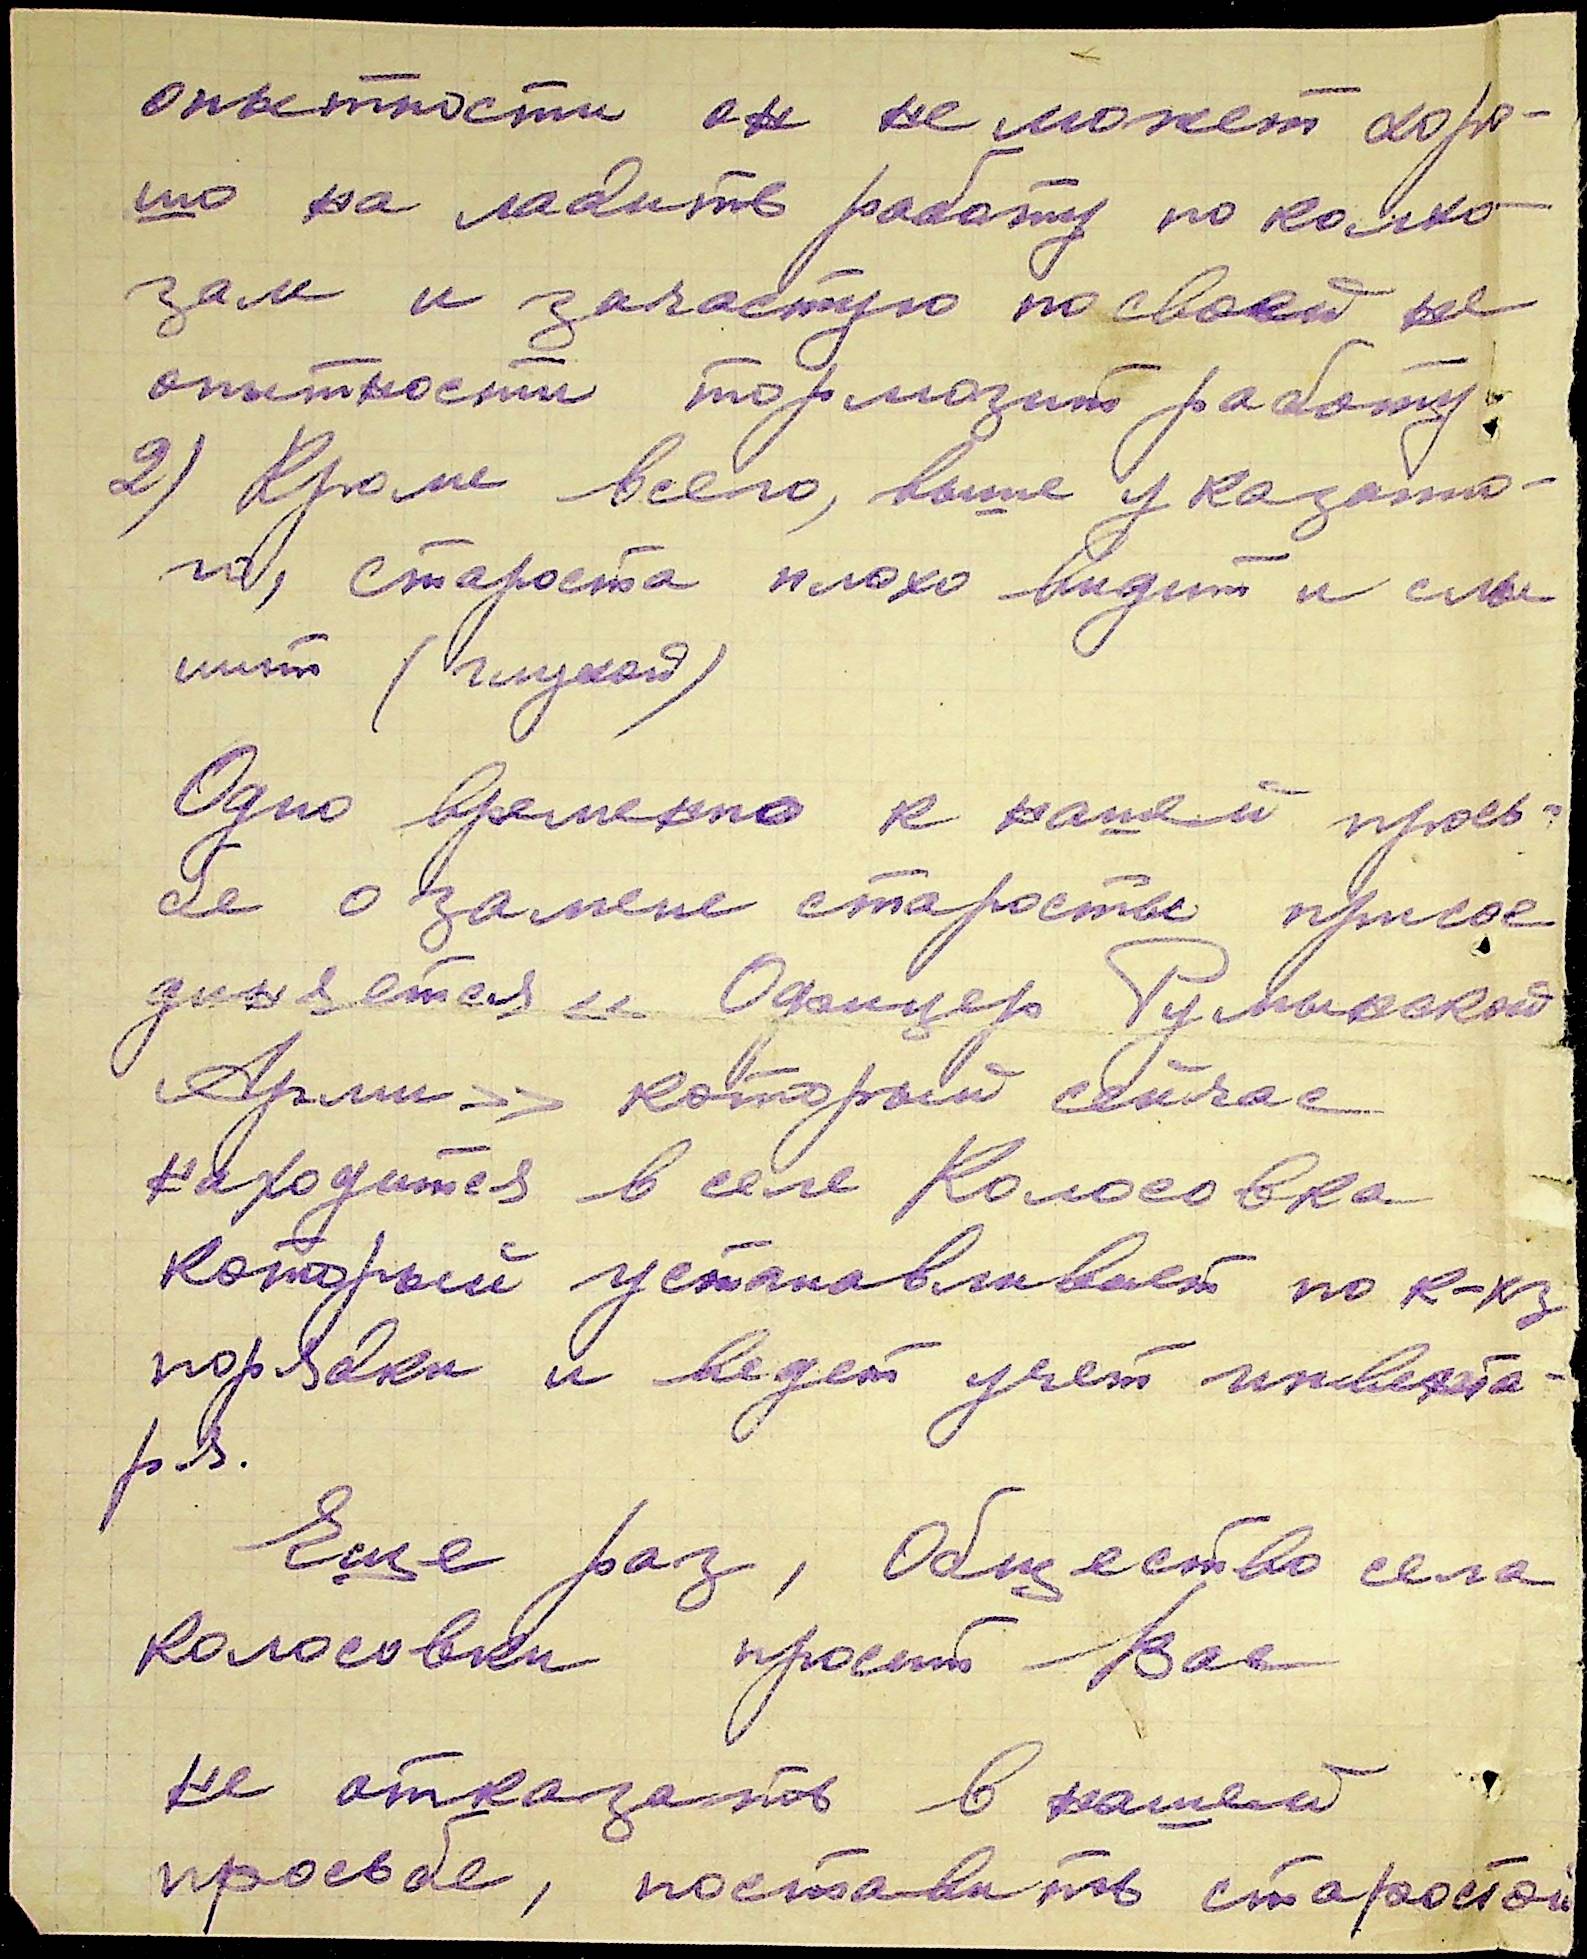 опытности он не может хоро-
шо на ладить работу по колхо
зам и зачастую по своей не
опытности тормозит работу.
2) Кроме всего, выше указанно-
го, староста плохо видит и слы
шит (глухой)
Одно временно к нашей прось-
бе о замене старосты присое
диняется и Офицер Румынской
Армии который сейчас
находится в селе Колосовка
который устанавливает по к-хз
порядки и ведет учет инвента-
ря.
Еще раз, Общество села
колосовки просит Вас
не отказать в нашей
просьбе, поставить старостой